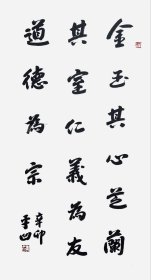 金玉其心芝蘭
其室仁義為友
道德為宗
辛卯